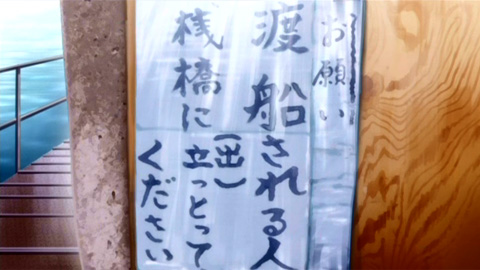 お願い
渡船される人
桟橋に(出)立っとって
ください